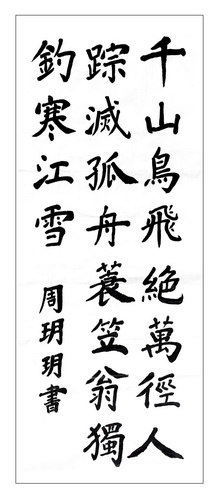 千山鳥飛絕萬徑人
踪滅孤舟蓑笠翁獨
釣寒江雪
周玥玥書